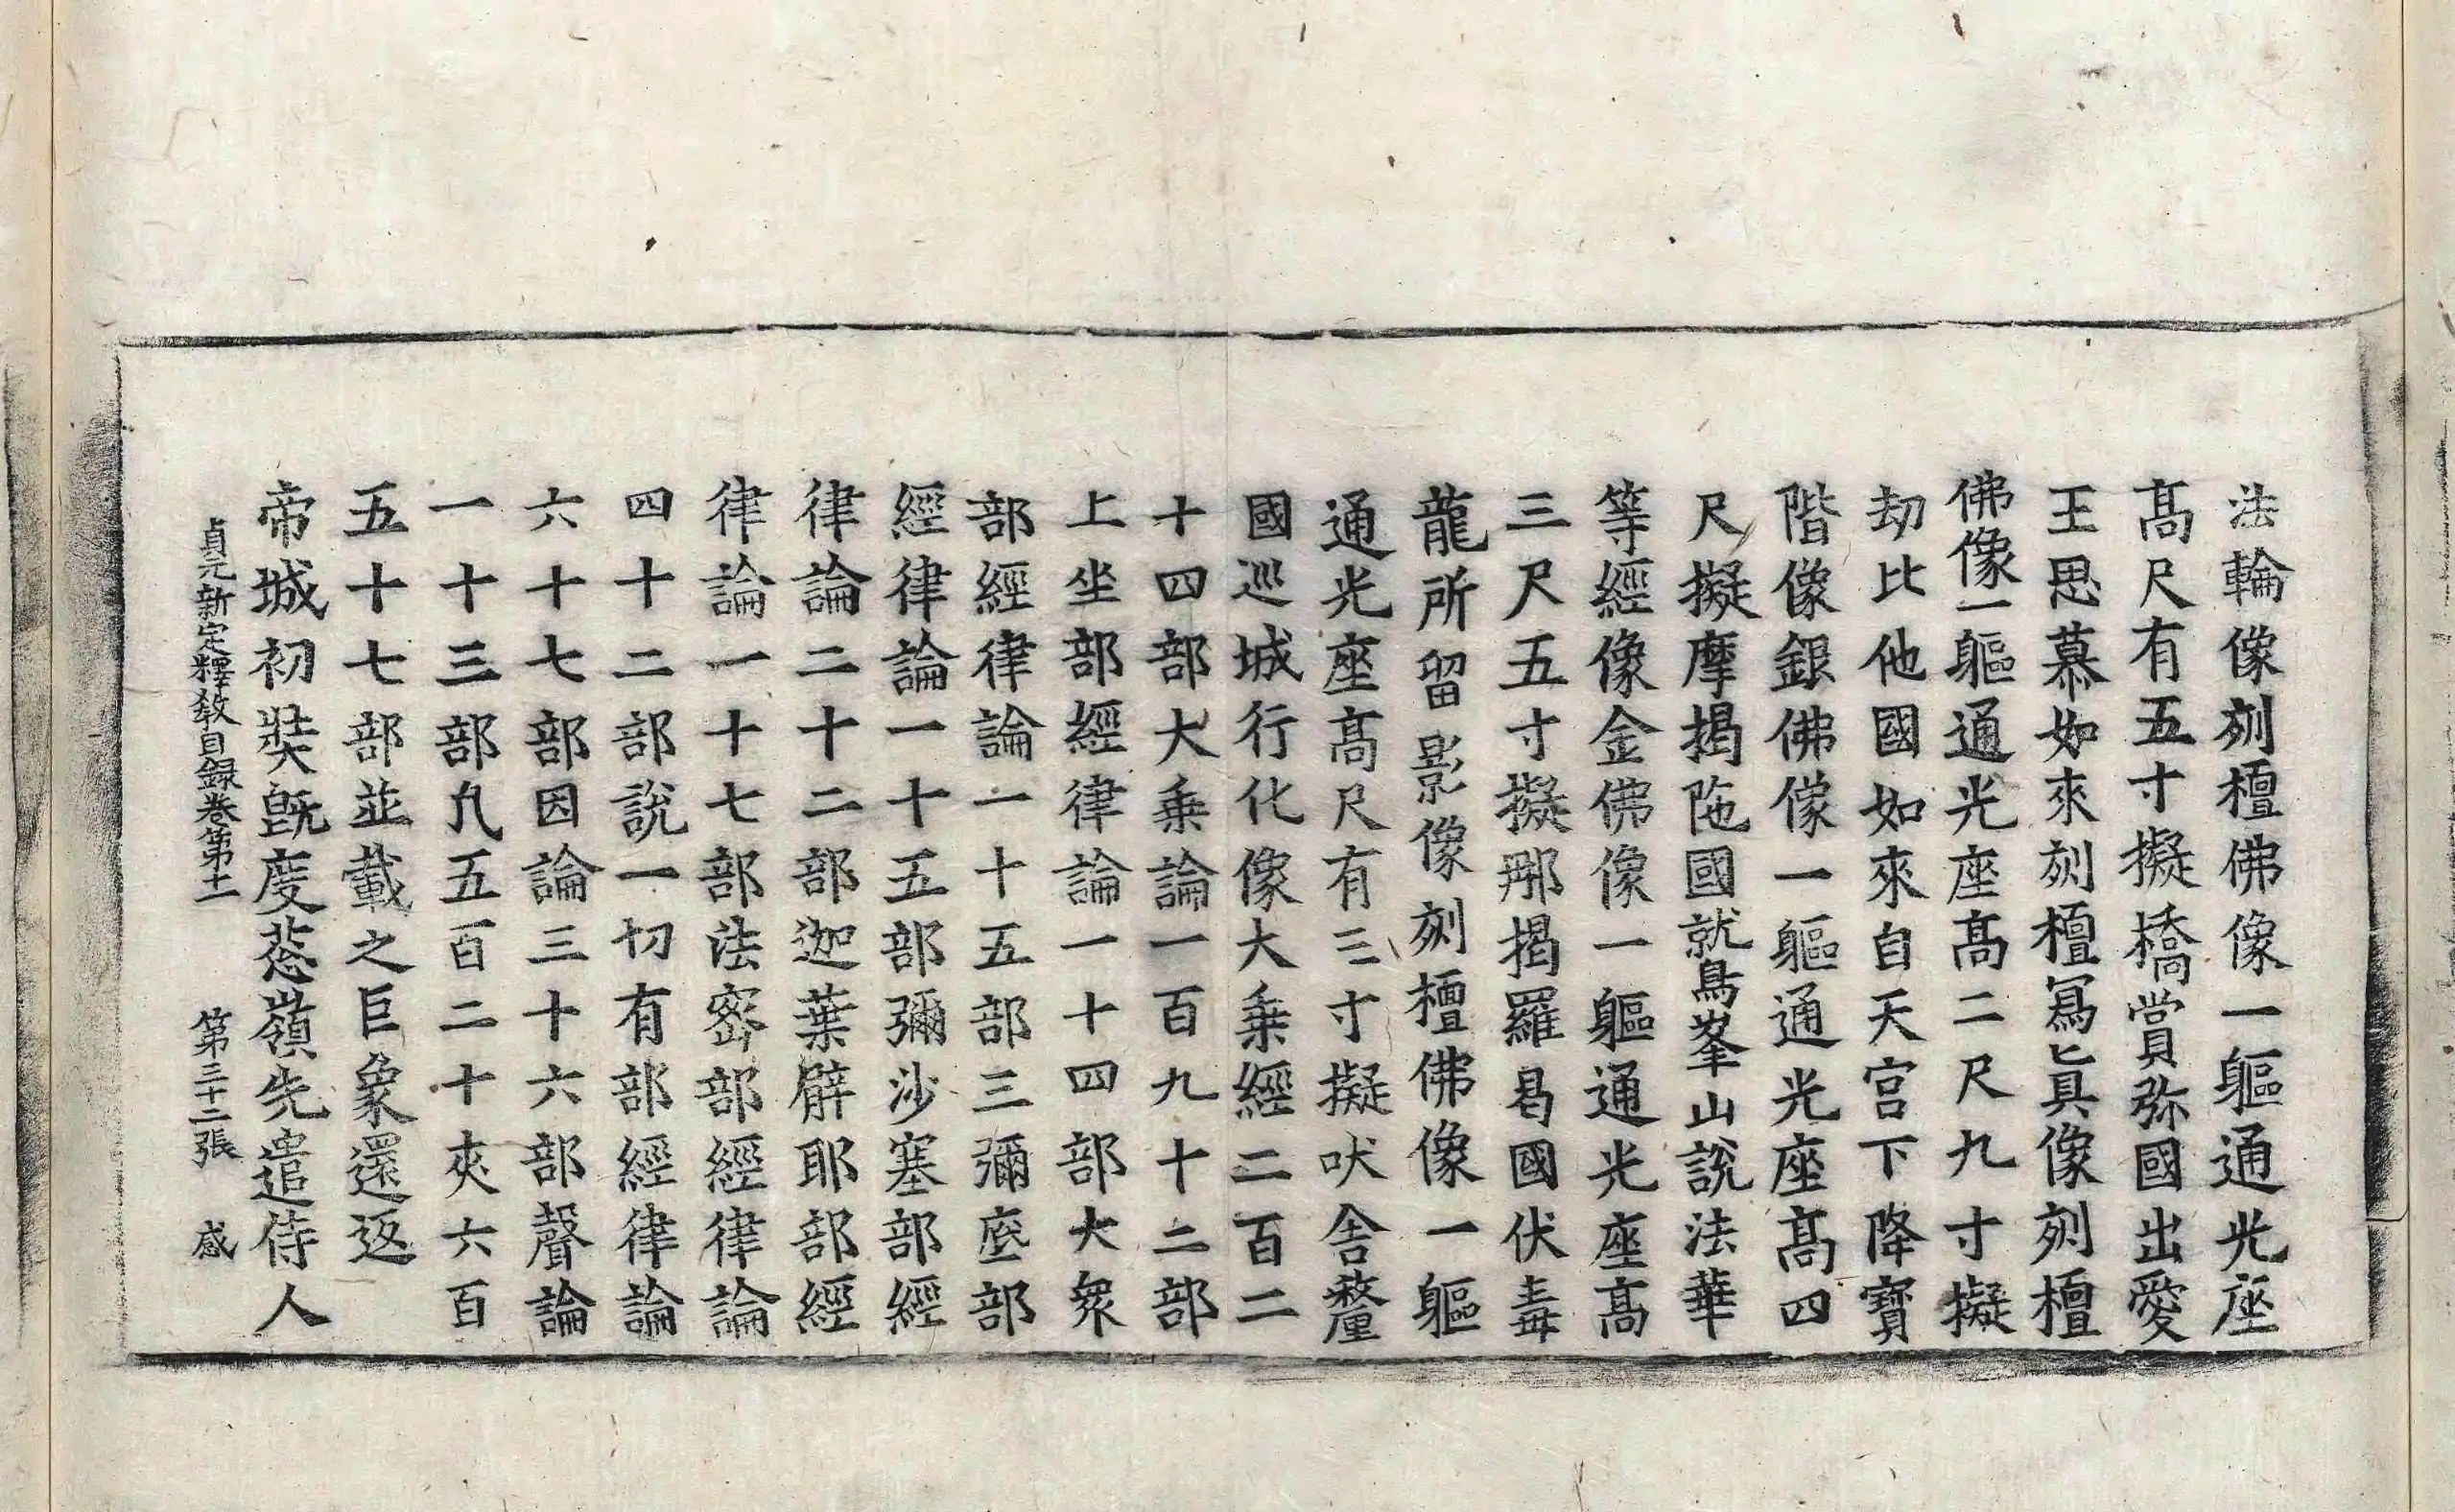 法輪像刻檀佛像一軀通光座
髙尺有五寸擬橋賞弥國出愛
王思慕如來刻檀寫眞像刻檀
佛像一軀通光座髙二尺九寸擬
劫比他國如來自天宫下降寶
階像銀佛像一軀通光座髙四
尺擬摩揭陁國就鳥峯山說法華
等經像金佛像一軀通光座髙
三尺五寸擬那揭羅曷國伏毒
龍所留影像刻檀佛像一軀
通光座髙尺有三寸擬吠舎釐
國巡城行化像大乗經二百二
十四部大乗論一百九十二部
上坐部經律論一十四部大衆
部經律論一十五部三彌底部
經律論一十五部彌沙塞部經
律論二十二部迦葉臂耶部經
律論一十七部法密部經律論
四十二部說一切有部經律論
六十七部因論三十六部聲論
一十三部凡五百二十夾六百
五十七部並載之巨象還返
帝城初奘旣度葱嶺先遣侍人
貞元新定釋敎目録卷第十一 第三十二張 感